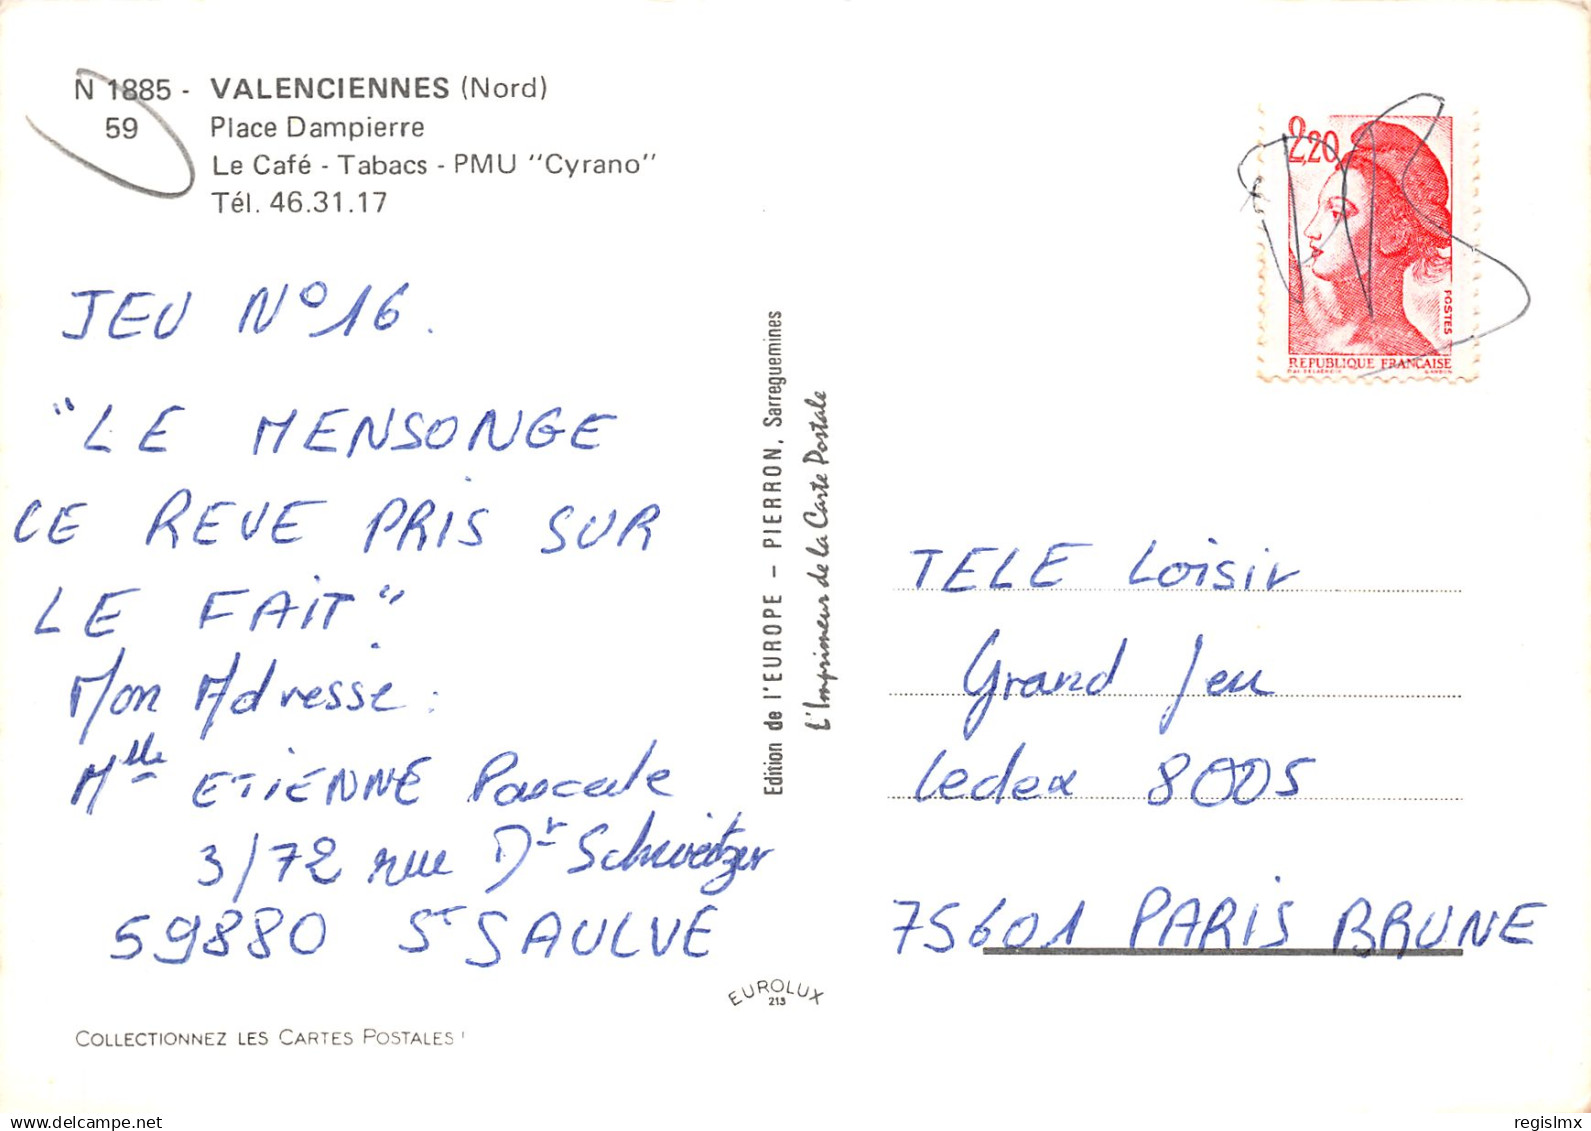 N 1885 - VALENCIENNES (Nord)
59 Place Dampierre
Le Café - Tabacs - PMU "Cyrano"
Tél. 46.31.17
JEU N° 16.
"LE MENSONGE
CE REVE PRIS SUR
LE FAIT"
Mon Adresse :
Mlle ETIENNE Pascale
3/72 rue Dr Schweitzer
59880 ST SAULVE
COLLECTIONNEZ LES CARTES POSTALES !
Edition de l'EUROPE - PIERRON, Sarreguemines
L'Imprimeur de la Carte Postale
EUROLUX
213
2,20
POSTES
REPUBLIQUE FRANÇAISE
TELE Loisir
Grand Jeu
Cedex 8005
75601 PARIS BRUNE
www.delcampe.net
regislmx